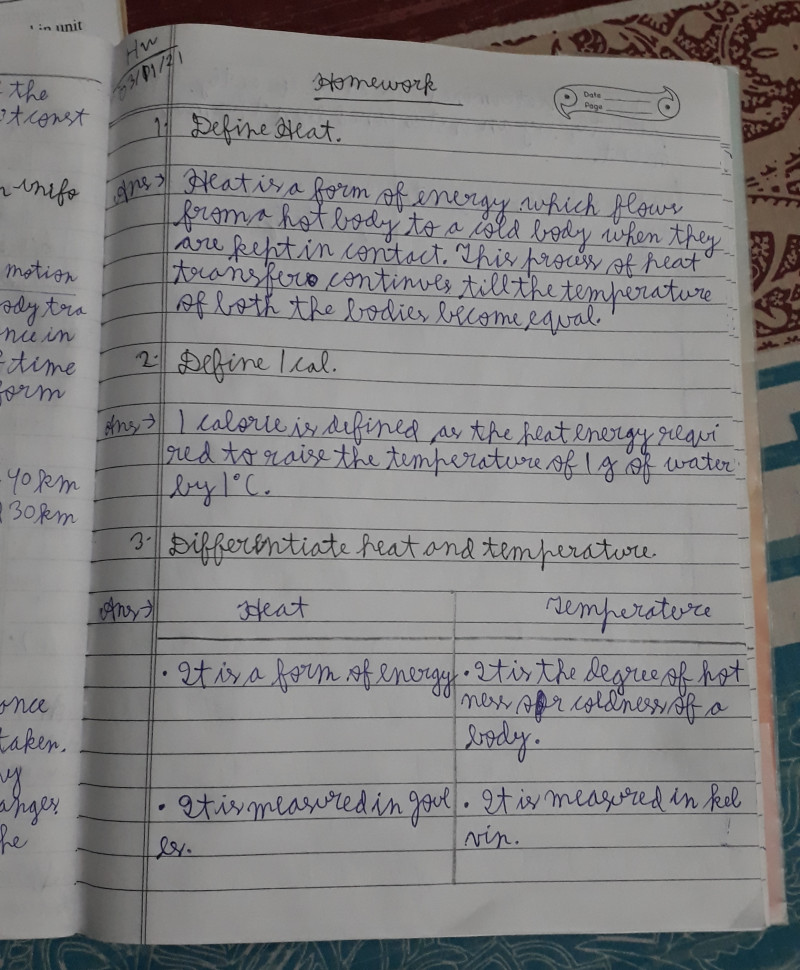 in unit
the
t const
n unifo
motion
ody tra
nce in
time
form
40 km
30 km
once
taken.
ny
anges
he
HW
03/01/21
Homework
Date
Page
1. Define Heat.
Ans→ Heat is a form of energy which flows
from a hot body to a cold body when they
are kept in contact. This process of heat
transfer continues till the temperature
of both the bodies become equal.
2. Define 1 cal.
Ans→ 1 calorie is defined as the heat energy requi
red to raise the temperature of 1 g of water
by 1°C.
3. Differentiate heat and temperature.
Ans→ Heat Temperature
• It is a form of energy • It is the degree of hot
ness or coldness of a
body.
• It is measured in joul • It is measured in kel
es. vin.